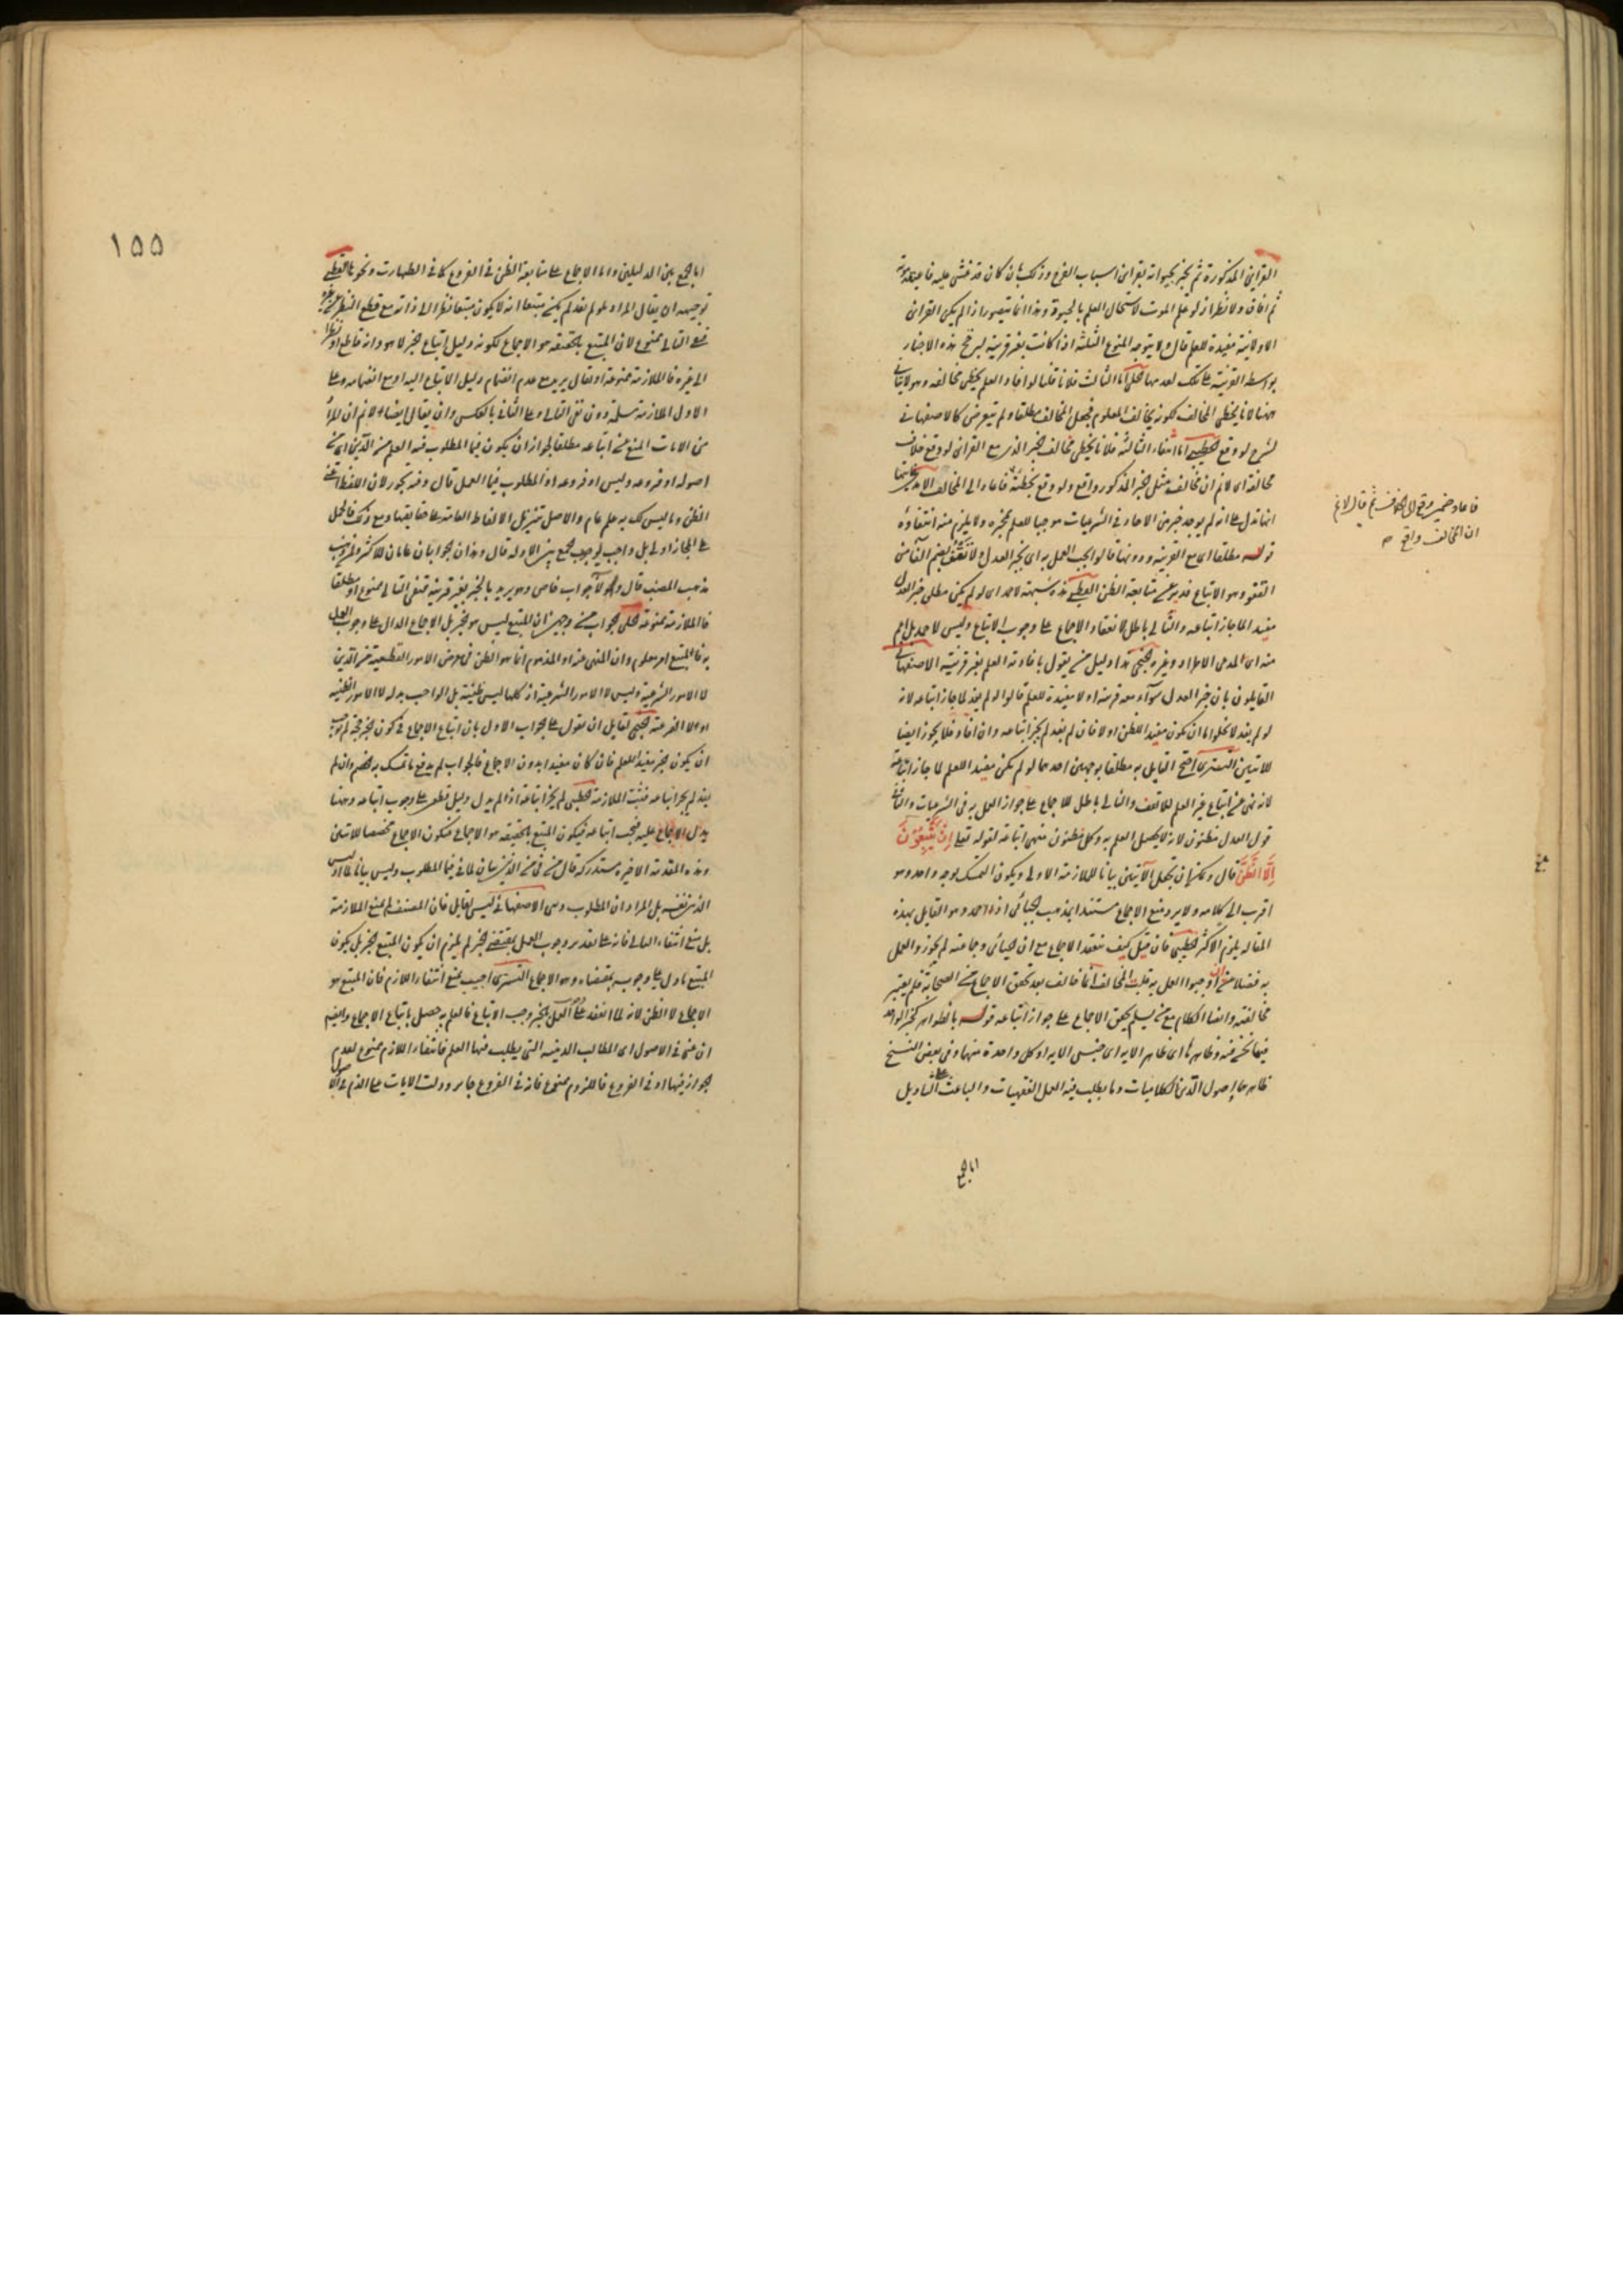 القراين المذكورة ثم يخبر بحيوته بقراين اسباب الفرح وذلك بان كان قد غشى عليه فاعتقد موته
ثم افاق ولا نظر اذ لو علم الموت لاستحال العلم بالحيوة وهذا انما يتصور اذا لم يكن القراين
الاولانية مفيدة للعلم قال ولا يتوجه المنوع الثلثة اذا كانت بغير قرينة ليرجح هذه الاخبار
بواسطة القرينة على تلك لعدمها الحلى اما الثالث فلانا قلنا لو افاد العلم يخطى مخالفه وهو لا يتاتى
ههنا لانا يخطى المخالف لكونه يخالف المعلوم فجعل المخالف مطلقا ولم يتعرض كالاصفهانى
لشرح لو وقع الخطيبى اما انتفاء الثالثة فلانا يخطى مخالف الخبر الذى مع القراين لو وقع خلاف
مخالفة اى لانم ان مخالف مثل الخبر المذكور واقع ولو وقع يخطئه فاعاد الى المخالف
انما تدل على انه لم يوجد خبر من الاحاد فى الشرعيات موجبا للعلم بمخبره ولا يلزم منه انتفاؤه
قوله مطلقا اى مع القرينة ودونها قالوا يجب العمل به اى بخبر العدل ولا تقف
القفو وهو الاتباع فدل على متابعة الظن القطبى هذه شبهة لاحد اى لو لم يكن مطلق خبر العدل
مفيدا لما جاز اتباعه والتالى باطل لانعقاد الاجماع على وجوب الاتباع وليس لاحد بل اعم
منه اى المدعى الاطراد وغيره الخنجى هذا دليل من يقول بافادته العلم بغير قرينة الاصفهانى
القايلون بان خبر العدل سواء معه قرينة او لا مفيدة للعلم قالوا لو لم يفد لما جاز اتباعه لانه
لو لم يفد لا يخلو اما ان يكون مفيدا للظن او لا فان لم يفد لم يجز اتباعه وان افاد فلا يجوز ايضا
للايتين التسترى احتج القايل به مطلقا بوجهين احدهما لو لم يكن مفيدا للعلم لما جاز اتباعه
لانه نهى عن اتباع غير العلم للاتقف والتالى باطل للاجماع على جواز العمل به فى الشرعيات والثانى
قول العدل مظنون لانه لا يحصل العلم به وكل مظنون منهى اتباعه لقوله تعلى اِنْ يَتَّبِعُوْنَ
اِلَّا الظَّنَّ قال ويمكن ان يجعل الايتين بيانا للملازمة الاولى ويكون التمسك بوجه واحد وهو
اقرب الى كلامه ولا يرد منع الاجماع مستندا بمذهب الجبائى اذ لاحد وهو القايل بهذه
المقالة يلزم الاكثر الخطيبى فان قيل كيف ينعقد الاجماع مع ان الجبائى وجماعته لم يجوزوا العمل
به فضلا عن ان اوجبوا العمل به قلت المخالف انما خالف بعد تحقق الاجماع من الصحابة فلم يعتبر
مخالفته وايضا الكلام مع من يسلم تحقق الاجماع على جواز اتباعه قوله بالظواهر كخبر الواحد
فيما نحن فيه وظاهرها اى ظاهر الاية اى جنس الاية او كل واحدة منها وفى بعض النسخ
ظاهر ما اصول الدين الكلاميات وما يطلب فيه العمل الفقهيات والباعث على التاويل
اما الجمع
فاعاد ضمير وقع الى المخالف ثم قال لا نم
ان المخالف واقع
١٥٥
اما الجمع بين الدليلين واما الاجماع على متابعة الظن فى الفروع كما فى الطهارت ونحوها القطبى
توجيهه ان يقال المراد لو لم يفد لم يكن متبعا انه لا يكون متبعا نظرا الى ذاته مع قطع النظر عن غيره
منع التالى ممنوع لان المتبع بالحقيقة هو الاجماع لكونه دليل اتباع الخبر لا هو وانه قاطع او نظرا
الى غيره فالملازمة ممنوعة او يقال يريد مع عدم انضمام دليل الاتباع اليه او مع انضمامه وعلى
الاول الملازمة مسلمة دون نفى التالى وعلى الثانى بالعكس وان يقال ايضا لا نم ان المراد
من الايات المنع من اتباعه مطلقا لجواز ان يكون فيما المطلوب فيه العلم من الدين اى من
اصوله او فروعه وليس او فروعه اذ المطلوب فيها العمل قال وفيه تجوز لان الفظا عن
الظن وما ليس لك به علم عام والاصل تنزيل الالفاظ العامة على حقايقها ومع ذلك فالحمل
على المجاز اولى بل واجب لوجوب الجمع بين الادلة قال وهذان الجوابان عامان للاكثر ولمن ذهب
مذهب المصنف قال وهو لا جواب خاص وهو يريد بالخبر بغير قرينة فنفى التالى ممنوع او مطلقا
فالملازمة ممنوعة الحلى الجواب من وجهين ان المتبع ليس هو الخبر بل الاجماع الدال على وجوب العمل
به فالمتبع امر معلوم وان المنهى عنه او المذموم انما هو الظن فى معرض الامور القطعية من الدين
لا الامور الشرعية وليس لا الامور الشرعية اذ كلها ليس ظنية بل الواجب بدله لا الامور الظنية
او لا الفرعية الخنجى لقايل ان يقول على الجواب الاول بان اتباع الاجماع فى كون الخبر حجة لم يوجب
ان يكون الخبر مفيدا للعلم فان كان مفيدا بدون الاجماع فالجواب لم يدفع ما تمسك به الخصم وان لم
يفد لم يجز اتباعه فثبت الملازمة الخطيبى لم يجز اتباعه اذا لم يدل دليل قطعى على وجوب اتباعه وههنا
يدل الاجماع عليه فيجب اتباعه فيكون المتبع بالحقيقة هو الاجماع فيكون الاجماع مخصصا للايتين
وهذه المقدمة الاخيرة مستدركة قال من فى من الدين بيان لما فى فيما المطلوب وليس بيانا لما اذ ليس
الدين نفسه بل المراد ان المطلوب وهى الاصفهانى ليس لقايل فان المصنف لم يمنع الملازمة
بل منع انتفاء التالى فانه على تقدير وجوب العمل بمقتضى الخبر لم يلزم ان يكون المتبع الخبر بل يكون
المتبع ما دل على وجوب بمقتضاه وهو الاجماع التسترى اجيب بمنع انتفاء اللازم فان المتبع هو
الاجماع لا الظن لانه لما انعقد على ان العمل بالخبر وجب الاتباع فالعلم به حصل باتباع الاجماع وايضا
ان عنى فى الاصول اى المطالب الدينية التى يطلب فيها العلم فانتفاء اللازم ممنوع لعدم
الجواز فيها او فى الفروع فاللزوم ممنوع فانه فى الفروع جايز ودلت الايات على الذم فى الاصول